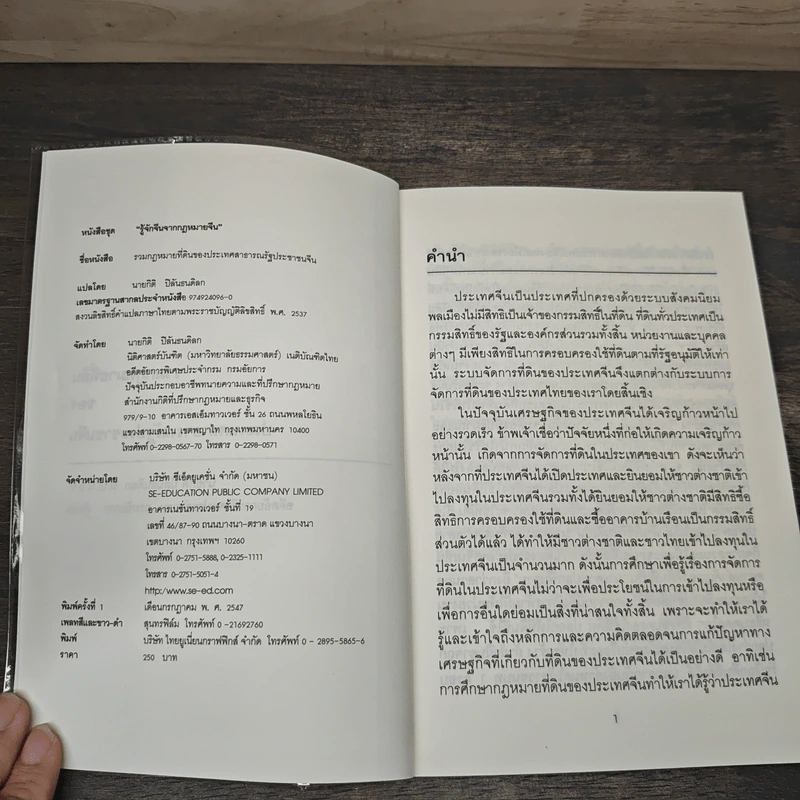 หนังสือชุด "รู้จักจีนจากกฎหมายจีน"
ชื่อหนังสือ รวมกฎหมายที่ดินของประเทศสาธารณรัฐประชาชนจีน
แปลโดย นายกิติ ปิลันธนดิลก
เลขมาตรฐานสากลประจำหนังสือ 974924096-0
สงวนลิขสิทธิ์คำแปลภาษาไทยตามพระราชบัญญัติลิขสิทธิ์ พ.ศ. 2537
จัดทำโดย นายกิติ ปิลันธนดิลก
นิติศาสตร์บันฑิต (มหาวิทยาลัยธรรมศาสตร์) เนติบัณฑิตไทย
อดีตอัยการพิเศษประจำกรม กรมอัยการ
ปัจจุบันประกอบอาชีพทนายความและที่ปรึกษากฎหมาย
สำนักงานกิติที่ปรึกษากฎหมายและธุรกิจ
979/9-10 อาคารเอสเอ็มทาวเวอร์ ชั้น 26 ถนนพหลโยธิน
แขวงสามเสนใน เขตพญาไท กรุงเทพมหานคร 10400
โทรศัพท์ 0-2298-0567-70 โทรสาร 0-2298-0571
จัดจำหน่ายโดย บริษัท ซีเอ็ดยูเคชั่น จำกัด (มหาชน)
SE-EDUCATION PUBLIC COMPANY LIMITED
อาคารเนชั่นทาวเวอร์ ชั้นที่ 19
เลขที่ 46/87-90 ถนนบางนา-ตราด แขวงบางนา
เขตบางนา กรุงเทพฯ 10260
โทรศัพท์ 0-2751-5888, 0-2325-1111
โทรสาร 0-2751-5051-4
http:/www.se-ed.com
พิมพ์ครั้งที่ 1 เดือนกรกฎาคม พ. ศ. 2547
เพลทสีและขาว-ดำ สุนทรฟิล์ม โทรศัพท์ 0-21692760
พิมพ์ บริษัท ไทยยูเนี่ยนกราฟฟิกส์ จำกัด โทรศัพท์ 0 - 2895-5865-6
ราคา 250 บาท
คำนำ
ประเทศจีนเป็นประเทศที่ปกครองด้วยระบบสังคมนิยม
พลเมืองไม่มีสิทธิเป็นเจ้าของกรรมสิทธิ์ในที่ดิน ที่ดินทั่วประเทศเป็น
กรรมสิทธิ์ของรัฐและองค์กรส่วนรวมทั้งสิ้น หน่วยงานและบุคคล
ต่างๆ มีเพียงสิทธิในการครอบครองใช้ที่ดินตามที่รัฐอนุมัติให้เท่า
นั้น ระบบการจัดการที่ดินของประเทศจีนจึงแตกต่างกับระบบการ
จัดการที่ดินของประเทศไทยของเราโดยสิ้นเชิง
ในปัจจุบันเศรษฐกิจของประเทศจีนได้เจริญก้าวหน้าไป
อย่างรวดเร็ว ข้าพเจ้าเชื่อว่าปัจจัยหนึ่งที่ก่อให้เกิดความเจริญก้าว
หน้านั้น เกิดจากการจัดการที่ดินในประเทศของเขา ดังจะเห็นว่า
หลังจากที่ประเทศจีนได้เปิดประเทศและยินยอมให้ชาวต่างชาติเข้า
ไปลงทุนในประเทศจีนรวมทั้งได้ยินยอมให้ชาวต่างชาติมีสิทธิซื้อ
สิทธิการครอบครองใช้ที่ดินและซื้ออาคารบ้านเรือนเป็นกรรมสิทธิ์
ส่วนตัวได้แล้ว ได้ทำให้มีชาวต่างชาติและชาวไทยเข้าไปลงทุนใน
ประเทศจีนเป็นจำนวนมาก ดังนั้นการศึกษาเพื่อรู้เรื่องการจัดการ
ที่ดินในประเทศจีนไม่ว่าจะเพื่อประโยชน์ในการเข้าไปลงทุนหรือ
เพื่อการอื่นใดย่อมเป็นสิ่งที่น่าสนใจทั้งสิ้น เพราะจะทำให้เราได้
รู้และเข้าใจถึงหลักการและความคิดตลอดจนการแก้ปัญหาทาง
เศรษฐกิจที่เกี่ยวกับที่ดินของประเทศจีนได้เป็นอย่างดี อาทิเช่น
การศึกษากฎหมายที่ดินของประเทศจีนทำให้เราได้รู้ว่าประเทศจีน
1